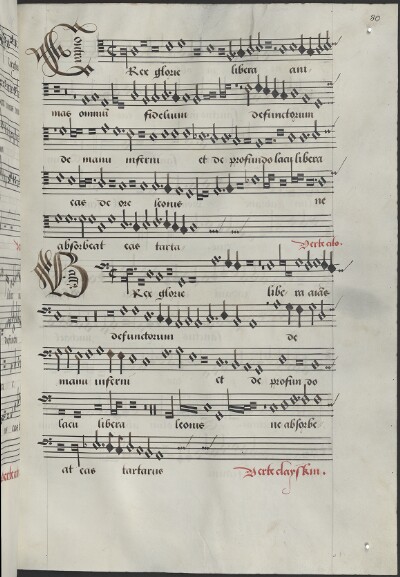 80
Contra
Rex glorie libera ani
mas omniũ fidelium defunctorum
de manu inferni et de profundo lacu libera
eas de ore leonis ne
absorbeat eas tarta
Verte cito.
Bass
Rex glorie libera aĩas
defunctorum de
manu inferni et de profun do
lacu libera leonis ne absorbe
at eas tartarus
Verte